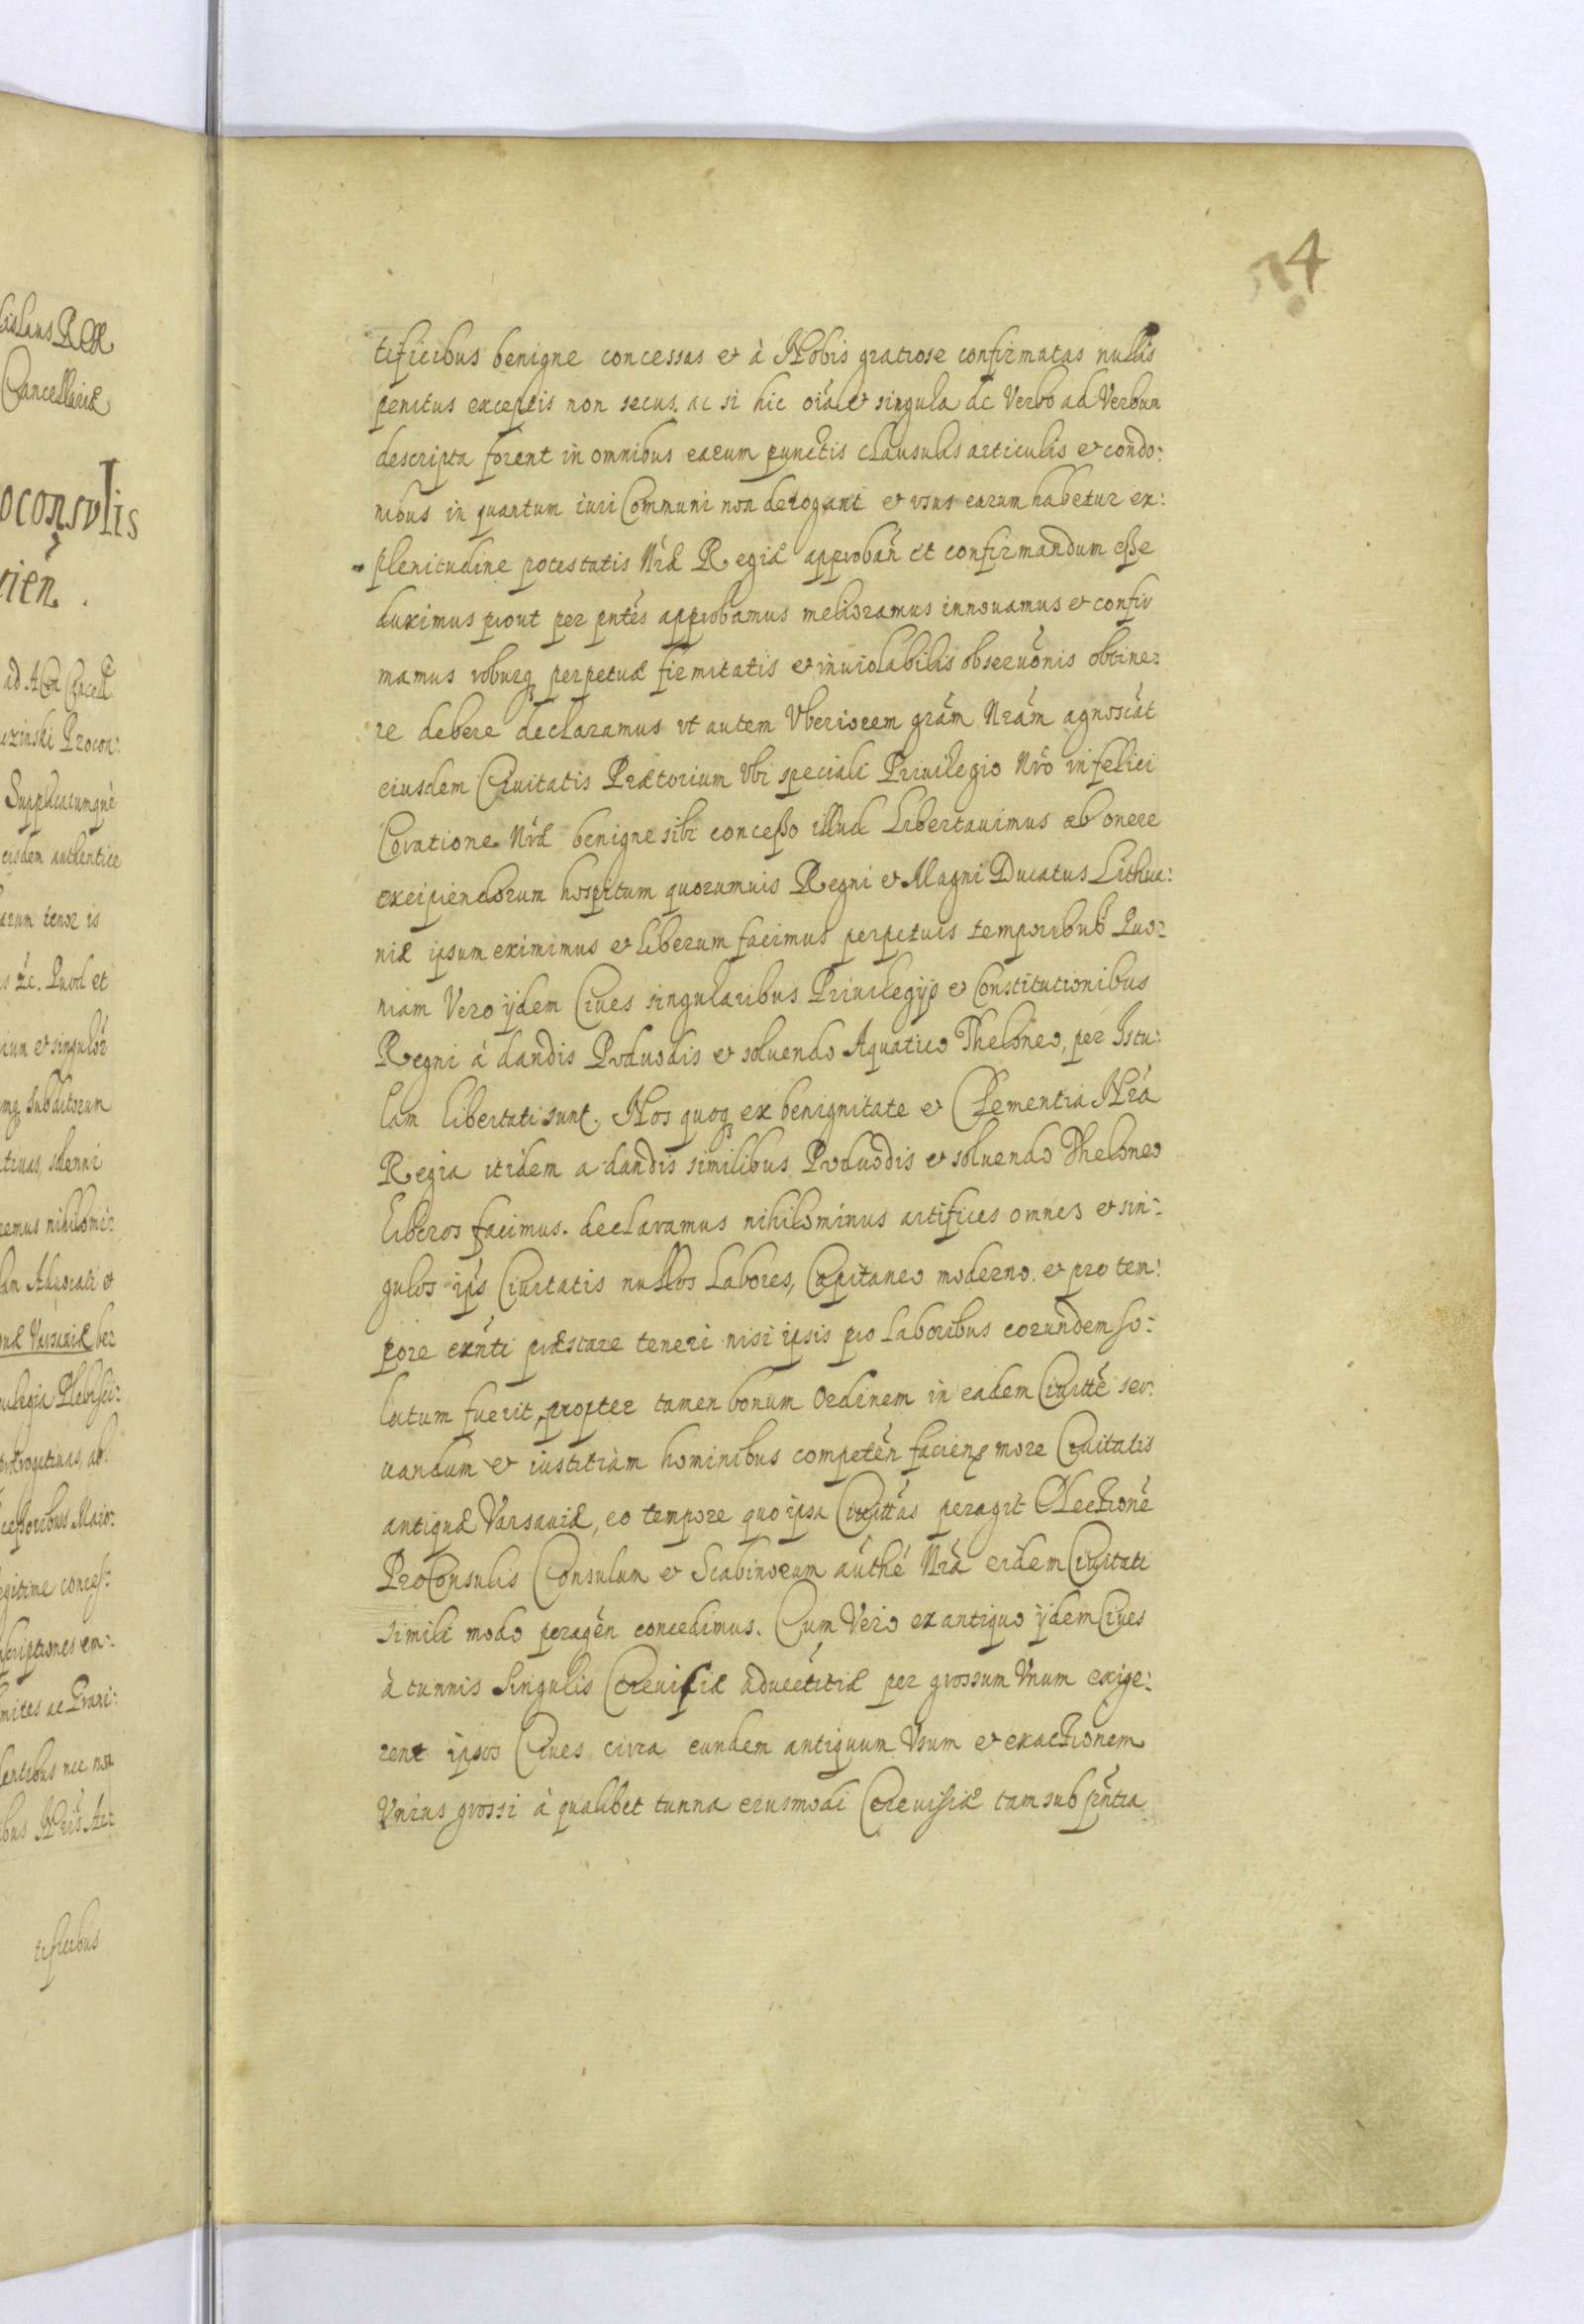 islaus Rex
Cancellariæ
oconsvlis
rien̄.
ad Acta Cancell
czinski Procon:
Supplicatumquè
eisdem authentice
arum tenor is
Quod et
ium et singulor̄
subditorum
ativas, solenni
remus nihilomi:
lam Aduocati et
Varsauiæ
uilegia Plebisci:
prærogatiuas, ab
cessoribus Maio:
egitime conces:
scriptiones em:
mites ac Grani:
dentibus nec non
ibus Nr̄is Ar:
tificibus
4
tificibus benigne concessas et à Nobis gratiose confirmatas nullis
penitus exceptis non secus. ac si hic oı̄a et singula de Verbo ad Verbum
descripta forent in omnibus earum punctis clausulis articulis et condo:
nibus in quantum iuri Communi non derogant et vsus earum habetur ex:
plenitudine potestatis Nr̄æ Regiæ approban̄ et confirmandum esse
duximus prout per pn̄tes approbamus melioramus innouamus et confir
mamus roburq perpetuæ firmitatis et inuiolabilis obseruōnis obtine:
re debere declaramus vt autem Vberiorem grām Nrām agnoscāt
eiusdem Ciuitatis Prætorium Vbi speciali Priuilegio Nrō in felici
Coratione Nrǣ benigne sibi concesso illud Libertauimus ab onere
excipiendorum hospitum quorumuis Regni et Magni Ducatus Lithua:
niæ ipsum eximimus et liberum facimus perpetuis temporibus Quo:
niam Vero ijdem Ciues singularibus Priuilegijs et Constitutionibus
Regni à dandis Poduodis et soluendo Aquatico Theloneo, per Istu:
lam libertati sunt. Nos quoq ex benignitate et Clementia Nrā
Regia itidem a dandis similibus Poduodis et soluendo Theloneo
liberos facimus. declaramus nihilominus artifices omnes et sin:
gulos ip̄s Ciuitatis nullos Labores, Capitaneo moderno. et pro tem:
pore exn̄ti præstare teneri nisi ipsis pro laboribus eorundem so:
lutum fuerit, propter tamen bonum Ordinem in eadem Ciuittē ser:
uandum et iustitiàm hominibus competēn facien more Ciuitatis
antiquæ Varsauiæ, eo tempore quo ipsa Ciuittās peragit Electionē
ProConsulis Consulum et Scabinorum aūthē Nrā eidem Ciuitati
simili modo peragēn concedimus. Cum Vero ex antiquo ijdem Ciues
à tunnis singulis Creuisiæ aduectitiæ per grossum Vnum exige:
rent ipsos Ciues circa eundem antiquum Vsum et exactionem
Vnius grossi à qualibet tunna eiusmodi Cereuisiæ tam sub pn̄tia